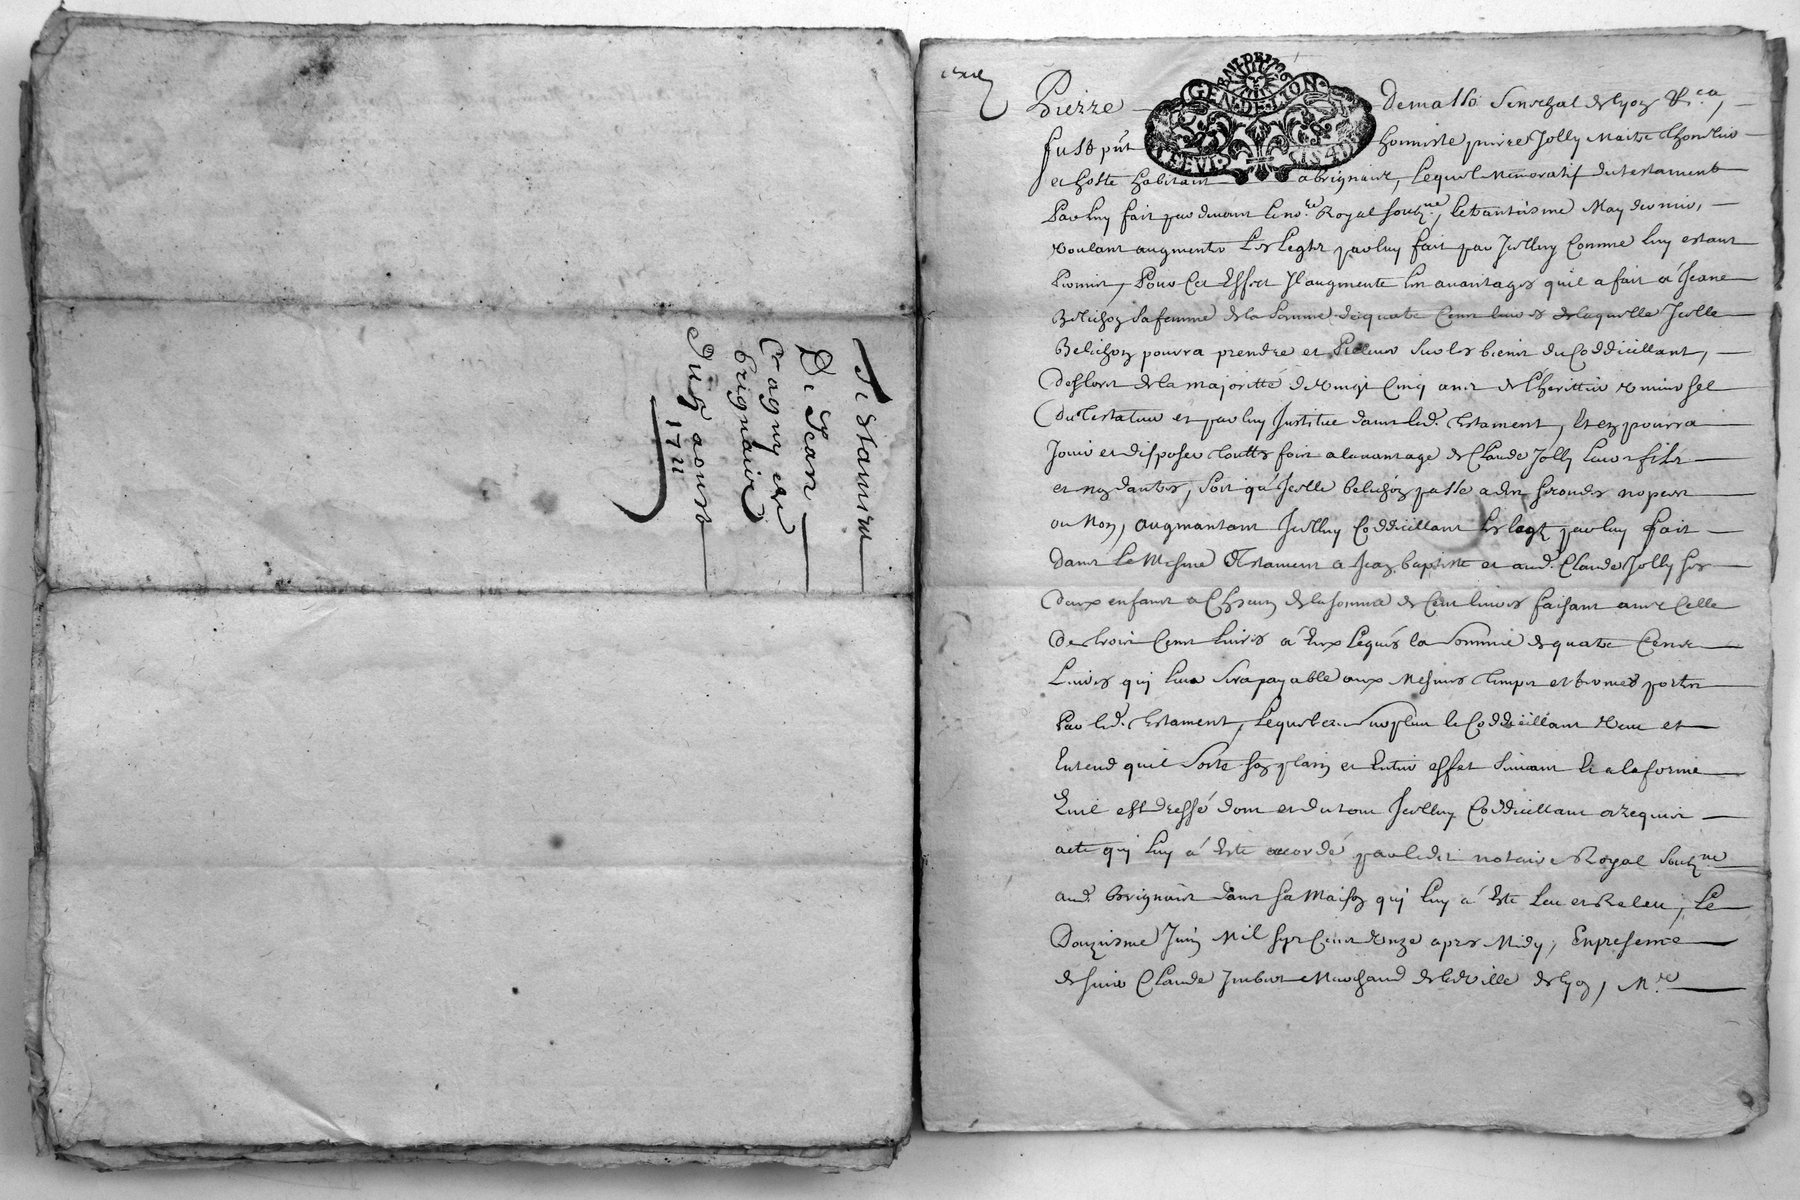 Testament
De Jean
Cragny de
brignaire
Du 7 aoust
1711
Pierre Demasso Senechal de lyon &ca,
GEN·DE·LION
fust pnt honneste pierre Jolly Maitre
et hoste habitant a brignaire, Lequel Memoratif du testament
Par luy fait par devant le nore Royal soubzne, le trantiesme May dernier,
voulant augmenter Les Legtz par luy fait par Icelluy Comme luy estant
Permis, Pour Cet Effect Il augmente les avantages quil a fait à Jeane
Belichon sa femme de la somme de quatre Cent livres de laquelle Icelle
Belichon pourra prendre et sur les biens du Coddicillant,
deslors de la majoritté de vingt Cinq ans de l'herittier universel
du testateur et par luy Institue dans led. testament, Et en pourra
Jouir et disposer touttes fois a lavantage de Claude Jolly leur fils
et non dautres, soit qu'Icelle belichon passe a des secondes nopces
ou Non, augmantant Icelluy Coddicillant les legtz par luy fait
dans le Mesme Testament a Jean baptiste et aud. Claude Jolly ses
deux enfans a Chacun de la somme de Cent livres faisant avec Celle
de trois Cent livres à Eux Legués la somme de quatre Cents
Livres qui leur sera payable aux Mesmes temps et termes portés
Par led. testament, Lequel au surplus le Coddicillant veut et
Entend quil sorte son plain et Entier effet suivant et a la forme
Quil est dressé dont et du tout Icelluy Coddicillant a requis
acte qui luy à Esté accordé par ledit notaire Royal soubzne
aud. brignaire dans sa Maison qui luy à Esté Leu et Releu, Le
Douziesme Juin Mil sept Cent Onze apres Midy, En presence
de sieur Claude Imbert Marchand de la ville de lyon, Mre